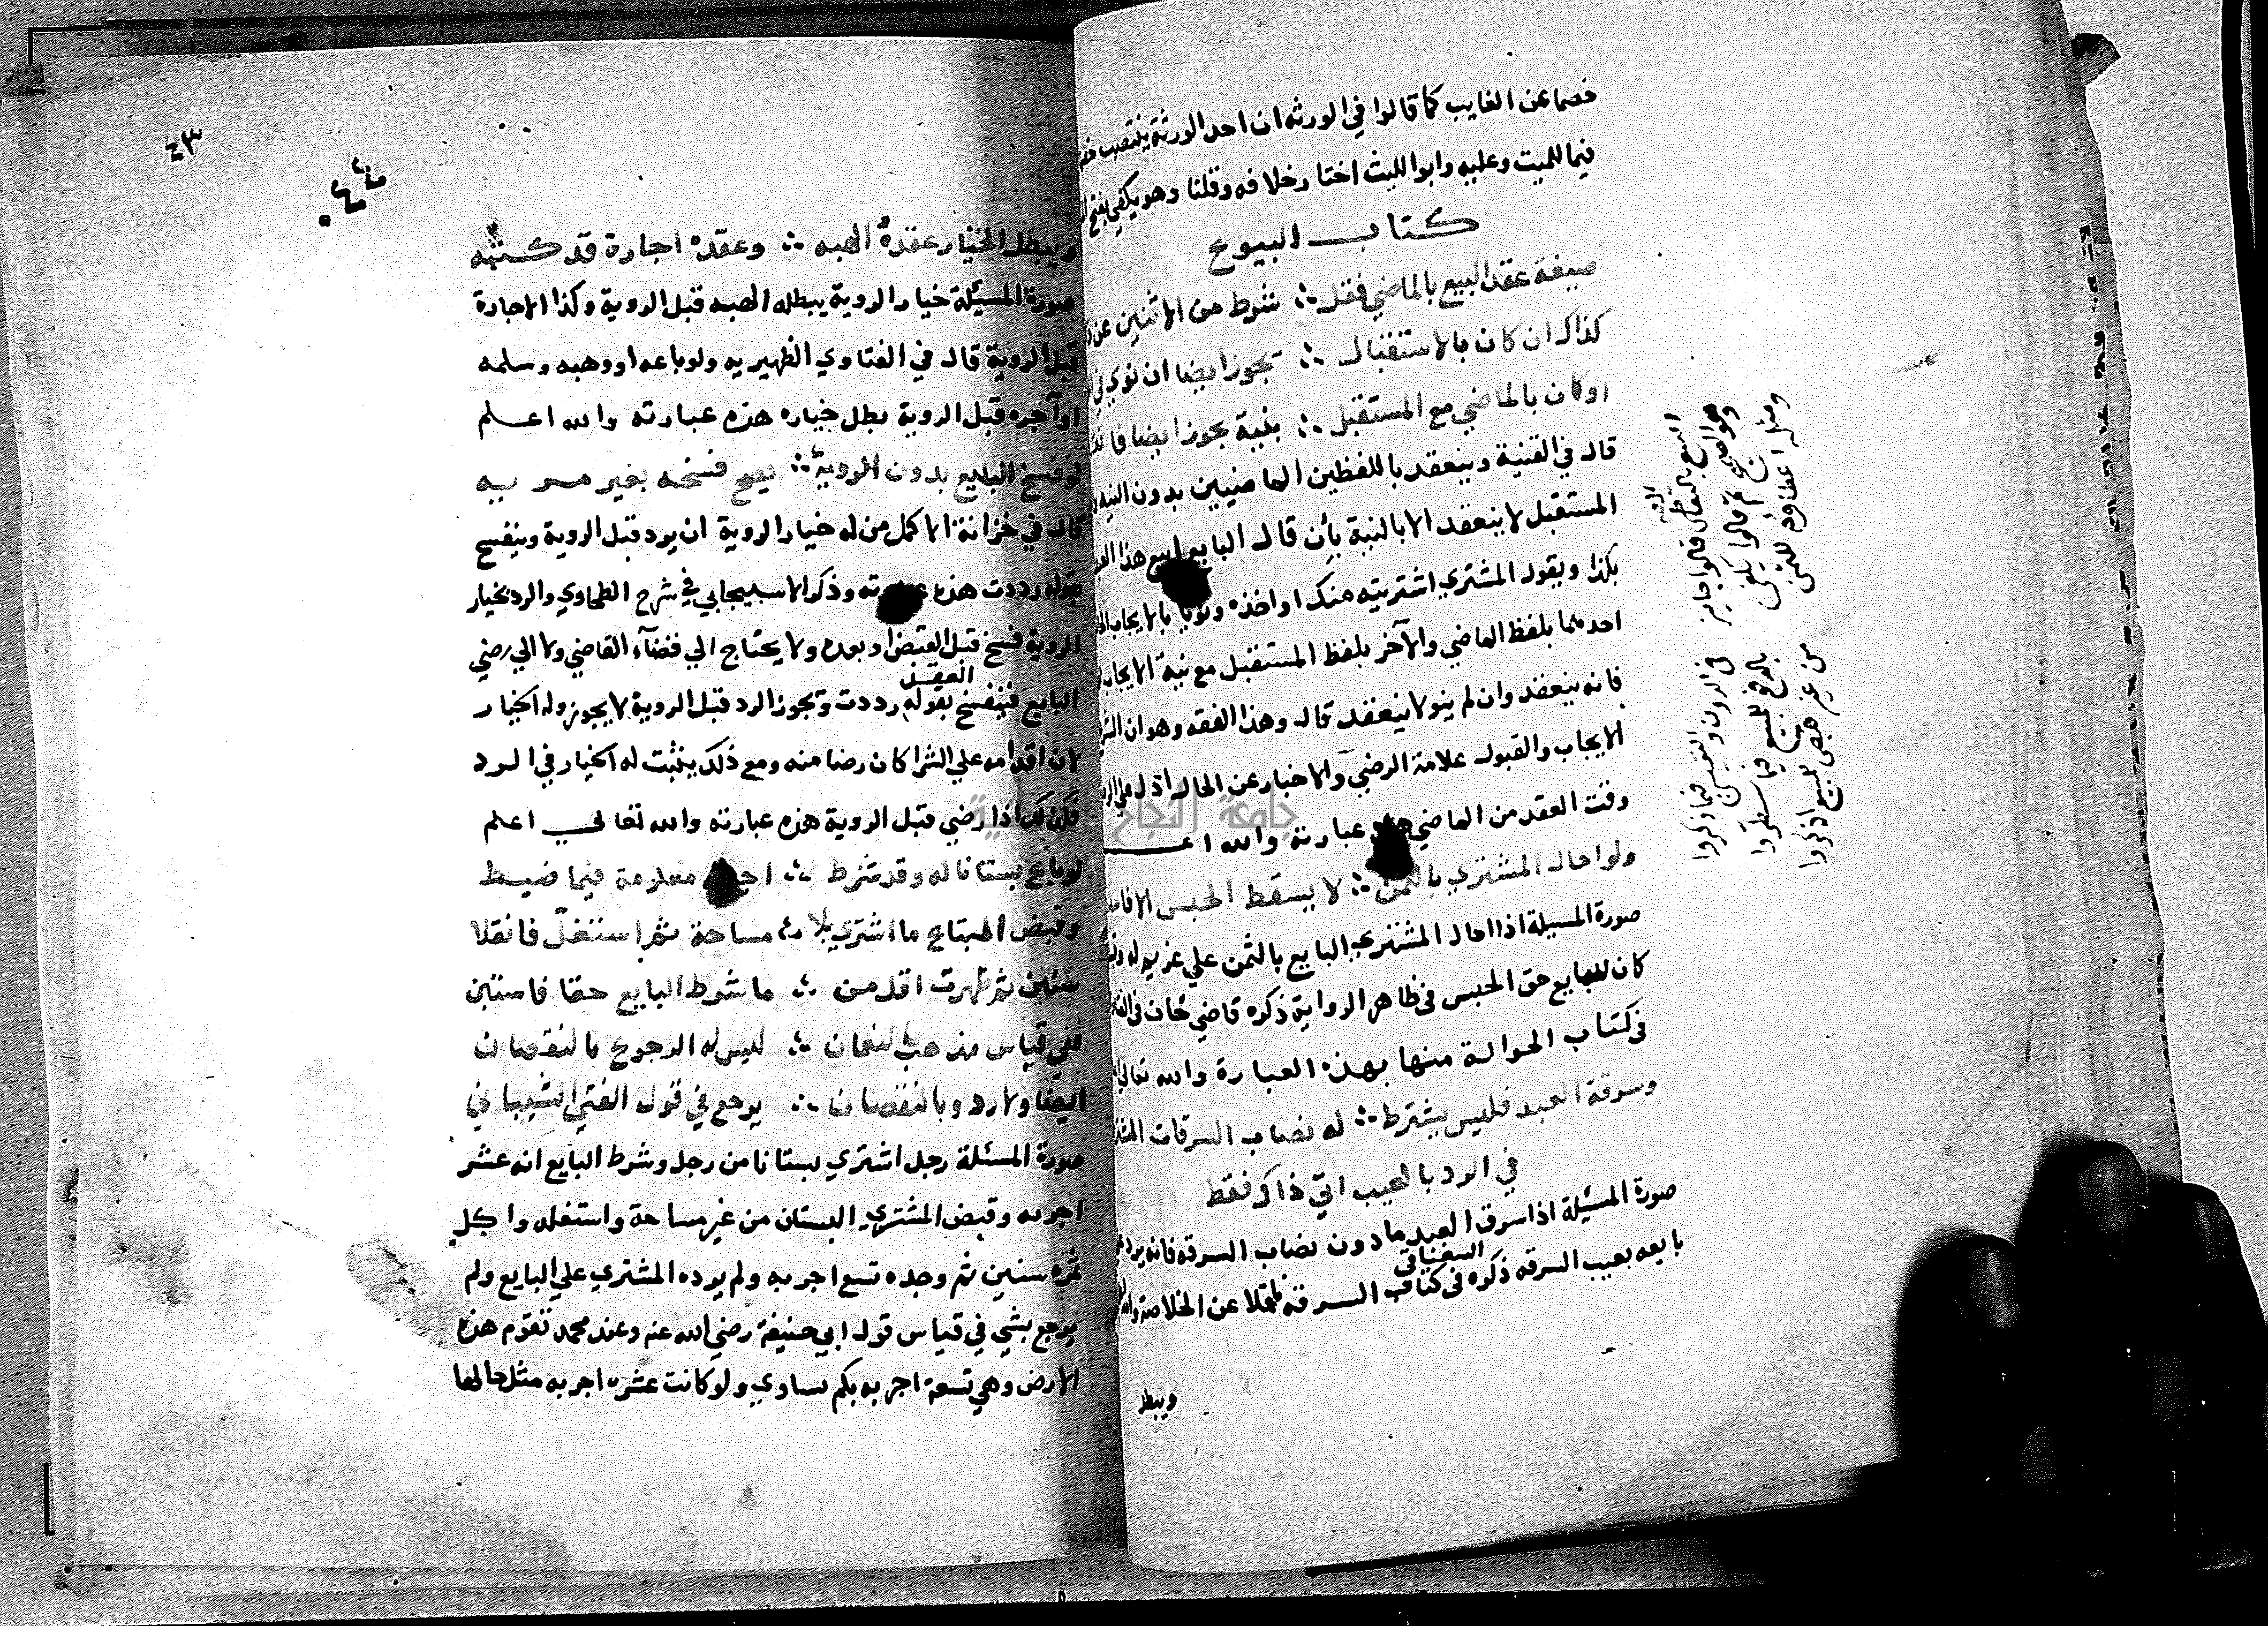 خصما عن الغايب كما قالوا في الورثه ان احد الورثة ينتصب
فيما للميت وعليه وابو الليث اختار خلافه وقلنا وهو يكفي
كتاب البيوع
صيغة عقد البيع بالماضي فقل ∴ شرط من الاثنين
كذاك ان كان بالاستقبال ∴ تجوز ايضا ان نوي
او كان بالماضي مع المستقبل ∴ بنية يجوز ايضا
قال في القنية وينعقد باللفظين الماضيين بدون النيه
المستقبل لا ينعقد الا بالنية بأن قال البايع ابيع هذا
بكذا ويقول المشتري اشتريته منك او اخذه ونويا بالايجاب
احدهما بلفظ الماضي والآخر بلفظ المستقبل مع نية الايجاب
فانه ينعقد وان لم ينو لا ينعقد قال وهذا الفقه وهو ان
الايجاب والقبول علامة الرضي والاخبار عن الحال ادل علي
وقت العقد من الماضي عبارته والله
ولو احال المشتري بالثمن ∴ لا يسقط الحبس
صورة المسيلة اذا احال المشتري البايع بالثمن علي غريم له
كان للبايع حق الحبس في ظاهر الرواية ذكره قاضي خان
في كتاب الحوالة منها بهذه العبارة والله تعالي
وسرقة العبد فليس يشترط ∴ له نصاب السرقات
في الرد بالعيب اتي ذاك فقط
صورة المسئيلة اذا سرق العبد ما دون نصاب السرقه فانه يرد
السغناقي
بايعه بعيب السرقه ذكره في كتاب السرقه نقلا عن الخلاصة
ويبطل
البيع بالتعاطي قالوا جايز
وهو الصحيح قالوا يكفي
ومثله اعطاوه للثمن
في الدون والنفيس فيما ذكروا
بالدفع للمبيع فيما سطروا
من غير قبض للمبيع اذكروا
٤٣
ويبطل الخيار عقده الهبه ∴ وعقده اجارة قد كسبه
صورة المسئلة خيار الروية يبطله الهبه قبل الروية وكذا الاجارة
قبل الروية قال في الفتاوي الظهيريه ولو باعه او وهبه وسلمه
او آجره قبل الروية بطل خياره هذه عبارته والله اعلم
لو فسخ البايع بدون الروية ∴ فسخه بغير
قال في خزانة الاكمل من له خيار الروية ان يرد قبل الروية وينفسخ
بقوله رددت هذه وذكر الاسبيجابي في شرح الطحاوي والرد بخيار
الروية فسخ قبل القبض او بعده ولا يحتاج الي قضآء القاضي ولا الي رضي
العقد
البايع فينفسخ بقوله رددت وتجوز الرد قبل الروية لا يجوز وله الخيار
لان اقدامه علي الشرا كان رضا منه ومع ذلك يثبت له الخيار في الرد
فكذلك اذا رضي قبل الروية هذه عبارته والله تعالي اعلم
لو باع بستانا له وقد شرط ∴ معلومة فيما ضبط
وقبض المبتاع ما اشتري بلا ∴ مساحة ثم استغل فانقلا
سنين ثم ظهرت اقل من ∴ ما شرط البايع حقا فاستبن
ففي قياس مذهب النعمان ∴ ليس له الرجوع بالنقصان
ايضا ولا رد وبالنقصان ∴ يرجع في قول الفتي الشيباني
صورة المسئلة رجل اشتري بستانا من رجل وشرط البايع انه عشر
اجربه وقبض المشتري البستان من غير مساحة واستغله واكل
ثمره سنين ثم وجده تسع اجربه ولم يرده المشتري علي البايع ولم
يرجع بشي في قياس قول ابي حنيفة رضي الله عنه وعند محمد تقوم هذه
الارض وهي تسعة اجربه بكم تساوي ولو كانت عشره اجربه مثل حالها